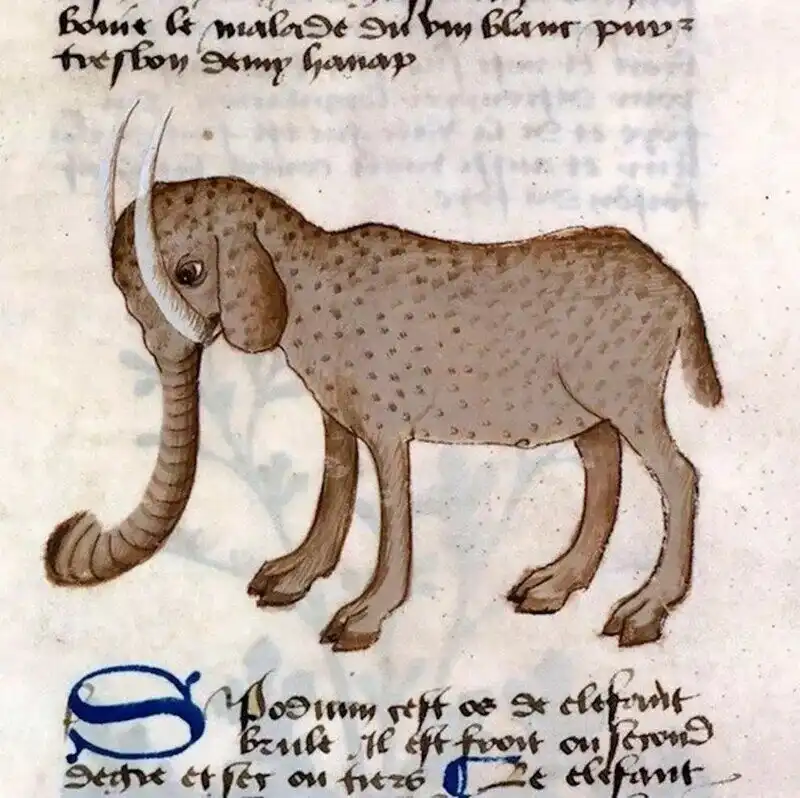 boire le malade du vin blanc puy⸗
tresbon demy hanap
Spodium cest os de elefant
brule Il est froit ou second
degre et sec ou tiers Le elefant